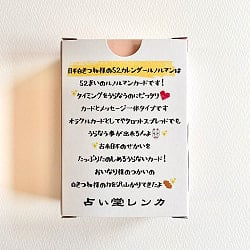 日本白きつね様の52カレンダールノルマンは
52まいのルノルマンカードです！
タイミングをうらなうのにピッタリ
カードとメッセージ一体タイプです
オラクルカードとしてやタロットスプレッドでも
うらなう事が出来るんよ
古き日本のせかいを
たっぷりたのしめるうらないカード！
おいなり様のつかいの
白きつね様の力を沢山かりてきたよ
占い堂レンカ